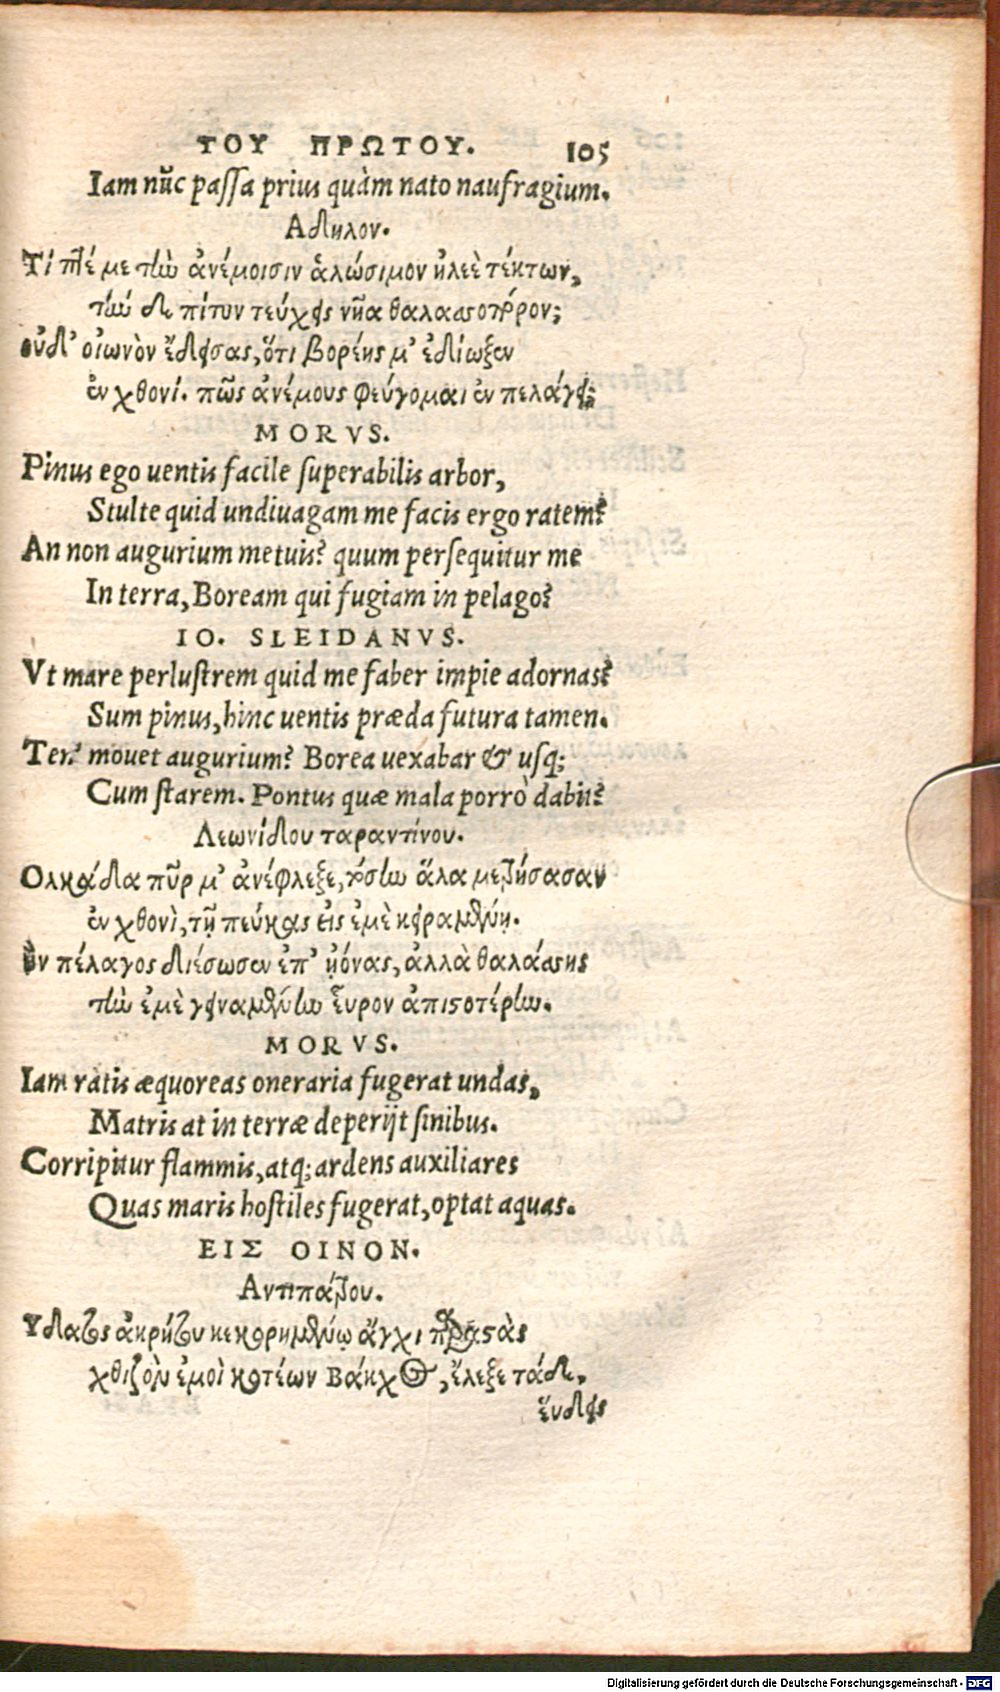 ΤΟΥ ΠΡΩΤΟΥ. 105
Iam nũc paſſa prius quàm nato naufragium.
Αδηλον.
Τίπτέ με τὼ ἀνέμοισιν ἁλώσιμον ἠλεὲ τέκτων,
τήν δε πίτυν τεύχεις νῆα θαλασσοπόρον;
οὐδ' οἰωνὸν ἔδεισας, ὅτι βορέης μ' ἐδίωξεν
ἐν χθονί. πῶς ἀνέμους φεύγομαι ἐν πελάγει;
MORVS.
Pinus ego uentis facile ſuperabilis arbor,
Stulte quid undiuagam me facis ergo ratem?
An non augurium metuis? quum perſequitur me
In terra, Boream qui fugiam in pelago?
IO. SLEIDANVS.
Vt mare perluſtrem quid me faber impie adornas?
Sum pinus, hinc uentis præda futura tamen.
Ten' mouet augurium? Borea uexabar & uſq;
Cum ſtarem. Pontus quæ mala porrò dabit?
Λεωνίδου ταραντίνου.
Ολκάδα πῦρ μ' ἀνέφλεξε, τόσην ἅλα μετρήσασαν
ἐν χθονὶ, τῇ πεύκας εἰς ἐμὲ κειραμένῃ.
ἣν πέλαγος διέσωσεν ἐπ' ᾐόνας, ἀλλὰ θαλάσσης
τὴν ἐμὲ γειναμένην εὗρον ἀπιστοτέρην.
MORVS.
Iam ratis æquoreas oneraria fugerat undas,
Matris at in terræ deperijt ſinibus.
Corripitur flammis, atq; ardens auxiliares
Quas maris hoſtiles fugerat, optat aquas.
ΕΙΣ ΟΙΝΟΝ.
Αντιπάτρου.
Υδατος ἀκρήτου κεκορημένῳ ἄγχι παραστὰς
χθιζὸν ἐμοὶ κοτέων Βάκχος, ἔλεξε τάδε.
εὕδεις
Digitalisierung gefördert durch die Deutsche Forschungsgemeinschaft - DFG